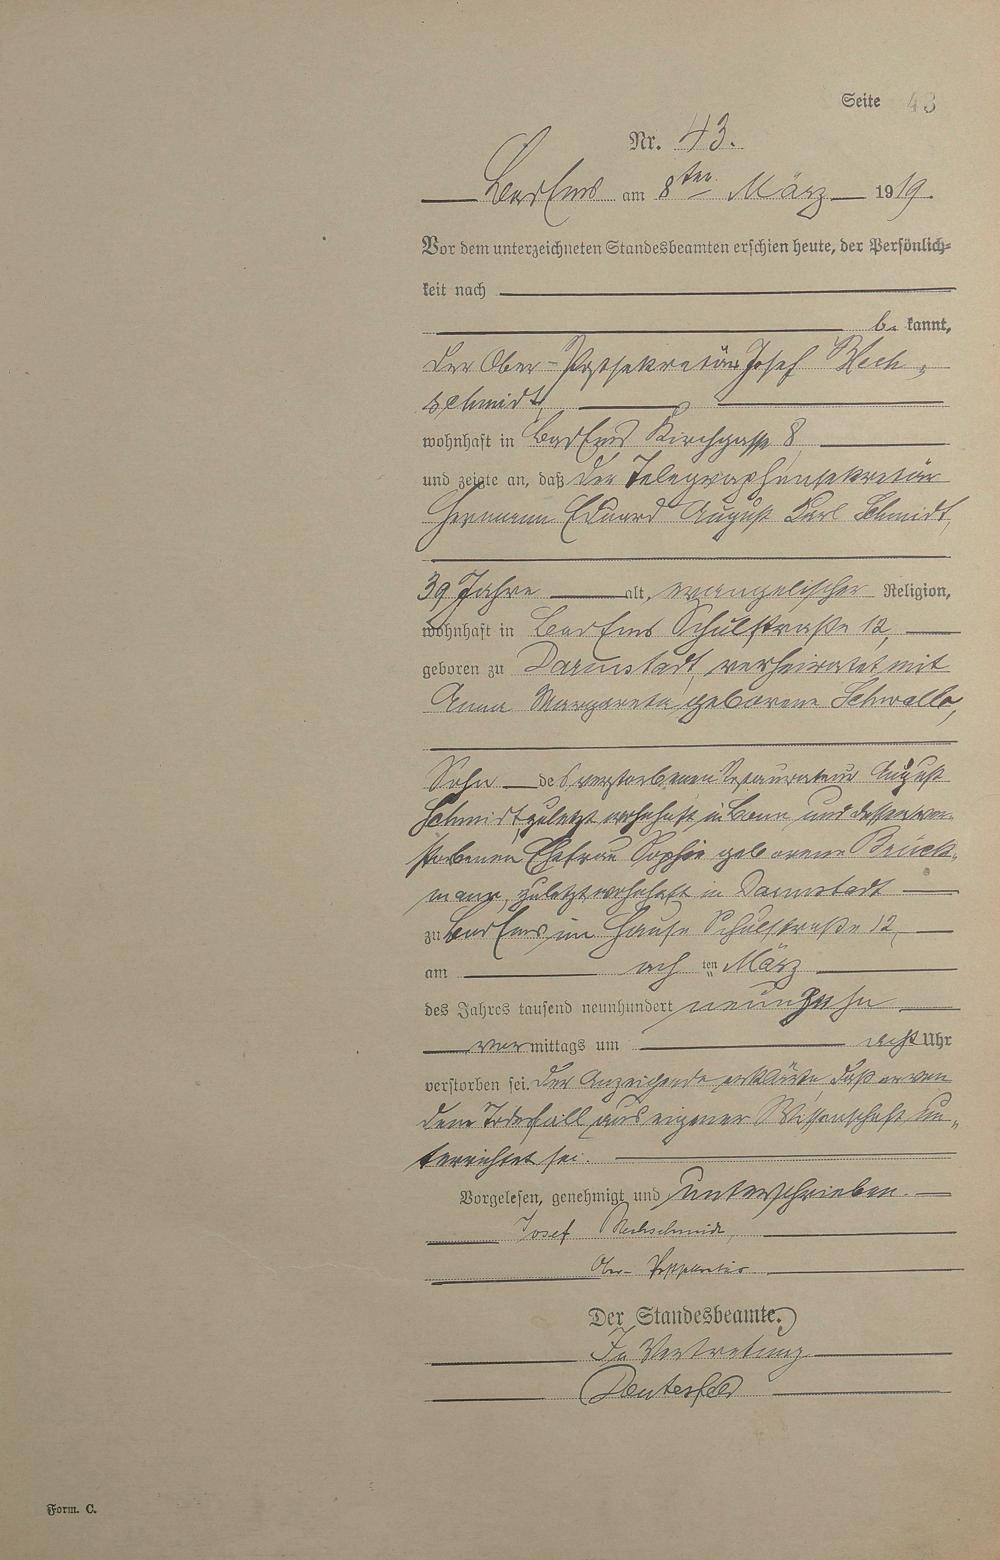 Seite 43
Nr. 43.
Bad Ems am 8ten März 1919.
Vor dem unterzeichneten Standesbeamten erschien heute, der Persönlich=
keit nach
be kannt,
der Ober-Postsekretär Josef Wech-
schmidt,
wohnhaft in Bad Ems Kirchgasse 8
und zeigte an, daß der Telegraphensekretär
Hermann Eduard August Karl Schmidt,
39 Jahre alt, evangelischer Religion,
wohnhaft in Bad Ems Schulstraße 12,
geboren zu Darmstadt, verheiratet mit
Anna Margareta, geborene Schwalb,
Sohn des verstorbenen Restaurateur August
Schmidt, zuletzt wohnhaft in Bonn, und dessen ver-
storbenen Ehefrau Sophie geborene Brück-
mann, zuletzt wohnhaft in Darmstadt
zu Bad Ems, im Hause Schulstraße 12,
am ach ten März
des Jahres tausend neunhundert neunzehn
vormittags um acht Uhr
verstorben sei. Der Anzeigende erklärte, daß er von
dem Todesfall aus eigener Wissenschaft un-
terrichtet sei.
Vorgelesen, genehmigt und unterschrieben.
Josef Wechschmidt,
Ober-Postsekretär
Der Standesbeamte.
In Vertretung
Form. C.